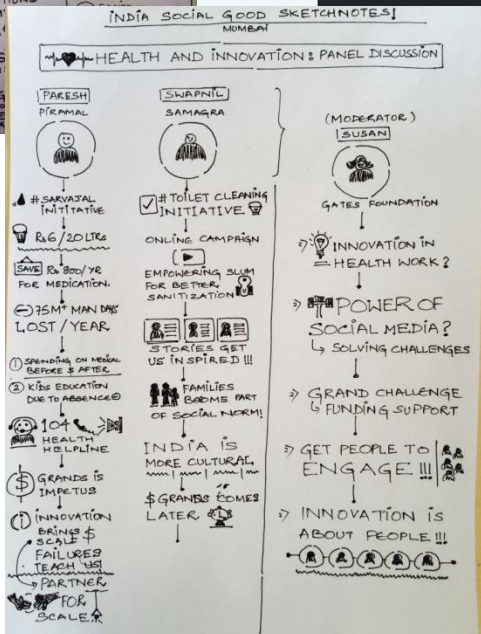 INDIA SOCIAL GOOD SKETCHNOTES!
MUMBAI
HEALTH AND INNOVATION: PANEL DISCUSSION
PARESH
PIRAMAL
# SARVAJAL
INITITATIVE
Rs 6/20 LTRS
SAVE Rs 800/YR
FOR MEDICATION.
75M+ MAN DAYS
LOST / YEAR
① SPENDING ON MEDICAL
BEFORE $ AFTER
② KIDS EDUCATION
DUE TO ABSENCE
104
HEALTH
HELPLINE
$ GRANDS IS
IMPETUS
INNOVATION
BRINGS $
SCALE
FAILURES
TEACH US!
PARTNER
FOR
SCALE
SWAPNIL
SAMAGRA
# TOILET CLEANING
INITIATIVE
ONLINE CAMPAIGN
EMPOWERING SLUM
FOR BETTER
SANITIZATION
STORIES GET
US INSPIRED !!!
FAMILIES
BECOME PART
OF SOCIAL NORM!
INDIA IS
MORE CULTURAL
$ GRANDS COMES
LATER
(MODERATOR)
SUSAN
GATES FOUNDATION
INNOVATION IN
HEALTH WORK?
POWER OF
SOCIAL MEDIA?
SOLVING CHALLENGES
GRAND CHALLENGE
FUNDING SUPPORT
GET PEOPLE TO
ENGAGE !!!
INNOVATION IS
ABOUT PEOPLE !!!